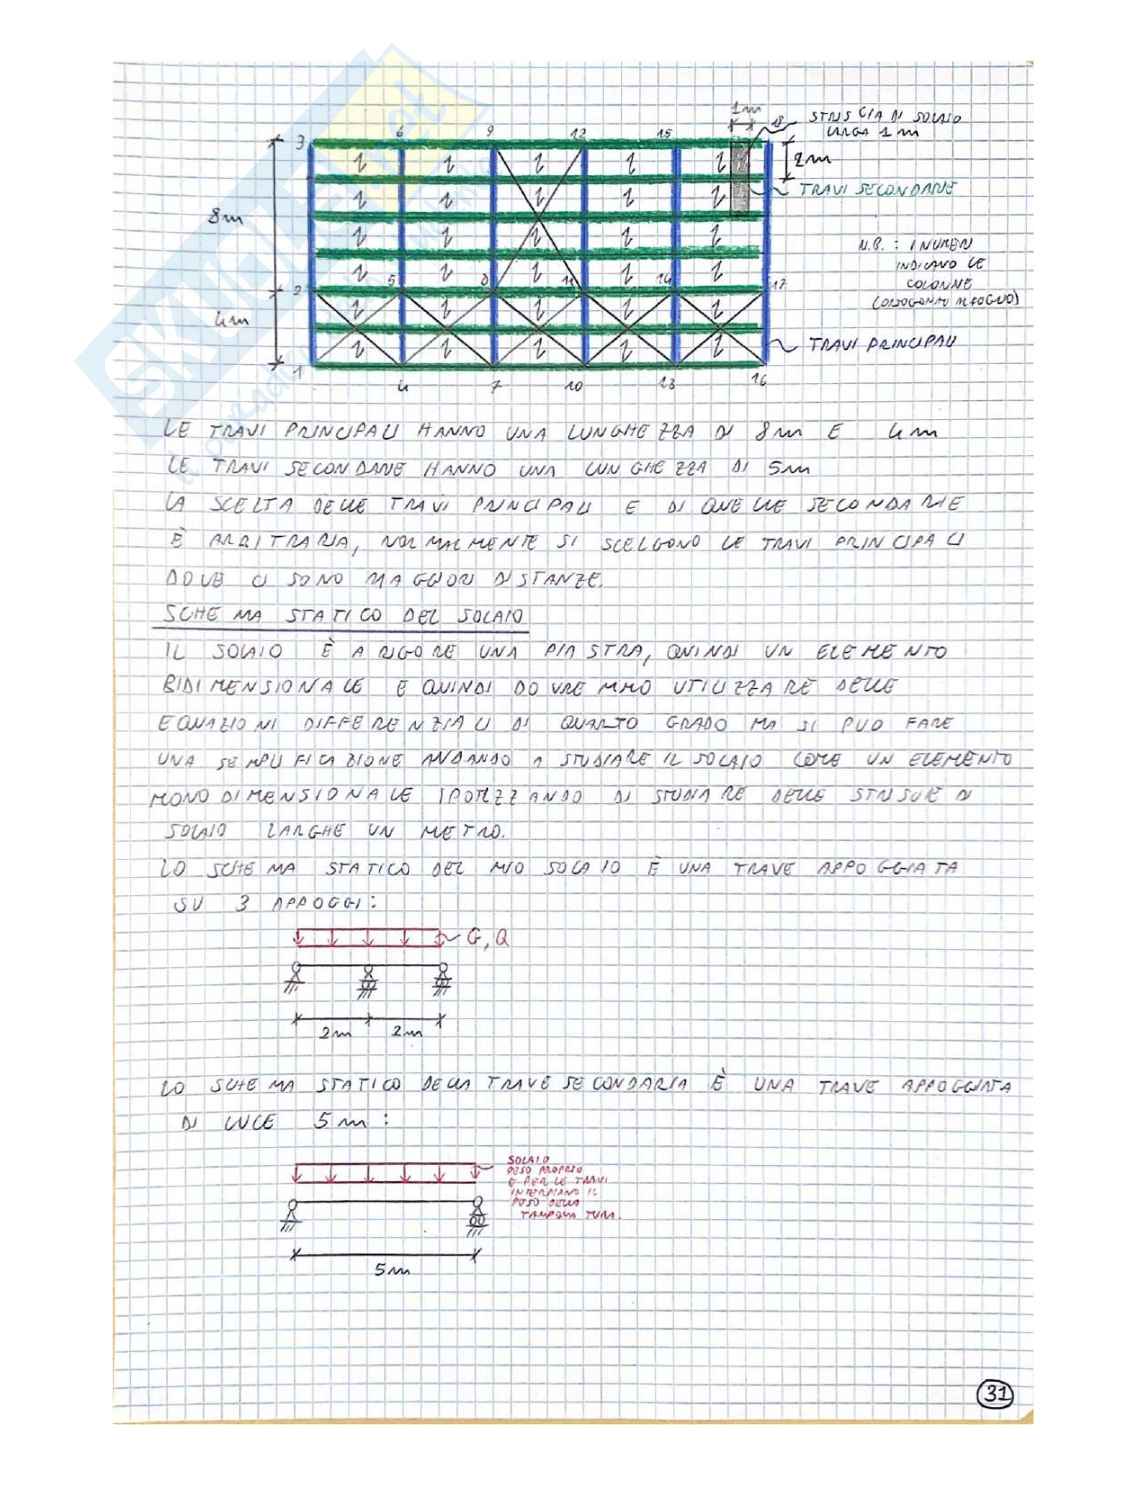 1m
STRISCIA DI SOLAIO
LARGA 1 m
3 6 9 12 15 18
2m
TRAVI SECONDARIE
8m
N.B.: I NUMERI
INDICANO LE
COLONNE
(ORTOGONALI AL FOGLIO)
2 5 8 11 14 17
4m
TRAVI PRINCIPALI
1 4 7 10 13 16
LE TRAVI PRINCIPALI HANNO UNA LUNGHEZZA DI 8m E 4m
LE TRAVI SECONDARIE HANNO UNA LUNGHEZZA DI 5m
LA SCELTA DELLE TRAVI PRINCIPALI E DI QUELLE SECONDARIE
È ARBITRARIA, NORMALMENTE SI SCELGONO LE TRAVI PRINCIPALI
DOVE CI SONO MAGGIORI DISTANZE.
SCHEMA STATICO DEL SOLAIO
IL SOLAIO È A RIGORE UNA PIASTRA, QUINDI UN ELEMENTO
BIDIMENSIONALE E QUINDI DOVREMMO UTILIZZARE DELLE
EQUAZIONI DIFFERENZIALI DI QUARTO GRADO MA SI PUÒ FARE
UNA SEMPLIFICAZIONE ANDANDO A STUDIARE IL SOLAIO COME UN ELEMENTO
MONODIMENSIONALE IPOTIZZANDO DI STUDIARE DELLE STRISCE DI
SOLAIO LARGHE UN METRO.
LO SCHEMA STATICO DEL MIO SOLAIO È UNA TRAVE APPOGGIATA
SU 3 APPOGGI:
G, Q
2m 2m
LO SCHEMA STATICO DELLA TRAVE SECONDARIA È UNA TRAVE APPOGGIATA
DI LUCE 5m:
SOLAIO
PESO PROPRIO
E PER LE TRAVI
INTERPIANO IL
PESO DELLA
TAMPONATURA.
5m
31